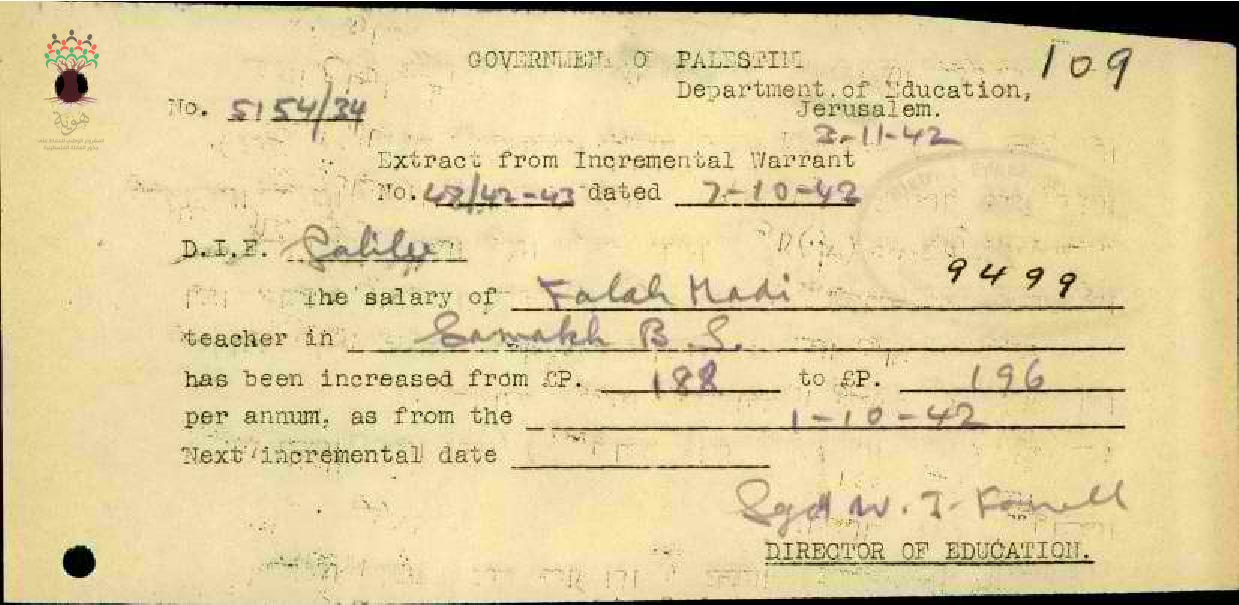 109
GOVERNMENT O PALESTINE
Department of Education,
Jerusalem.
No. 5154/34
2-11-42
Extract from Incremental Warrant
No. 48/42-43 dated 7-10-42
D.I.E. Galilee
9499
The salary of Falah Madi
teacher in Samakh B. S.
has been increased from £P. 188 to £P. 196
per annum, as from the 1-10-42
Next incremental date
Sgd W. J. Farrell
DIRECTOR OF EDUCATION.
هوية